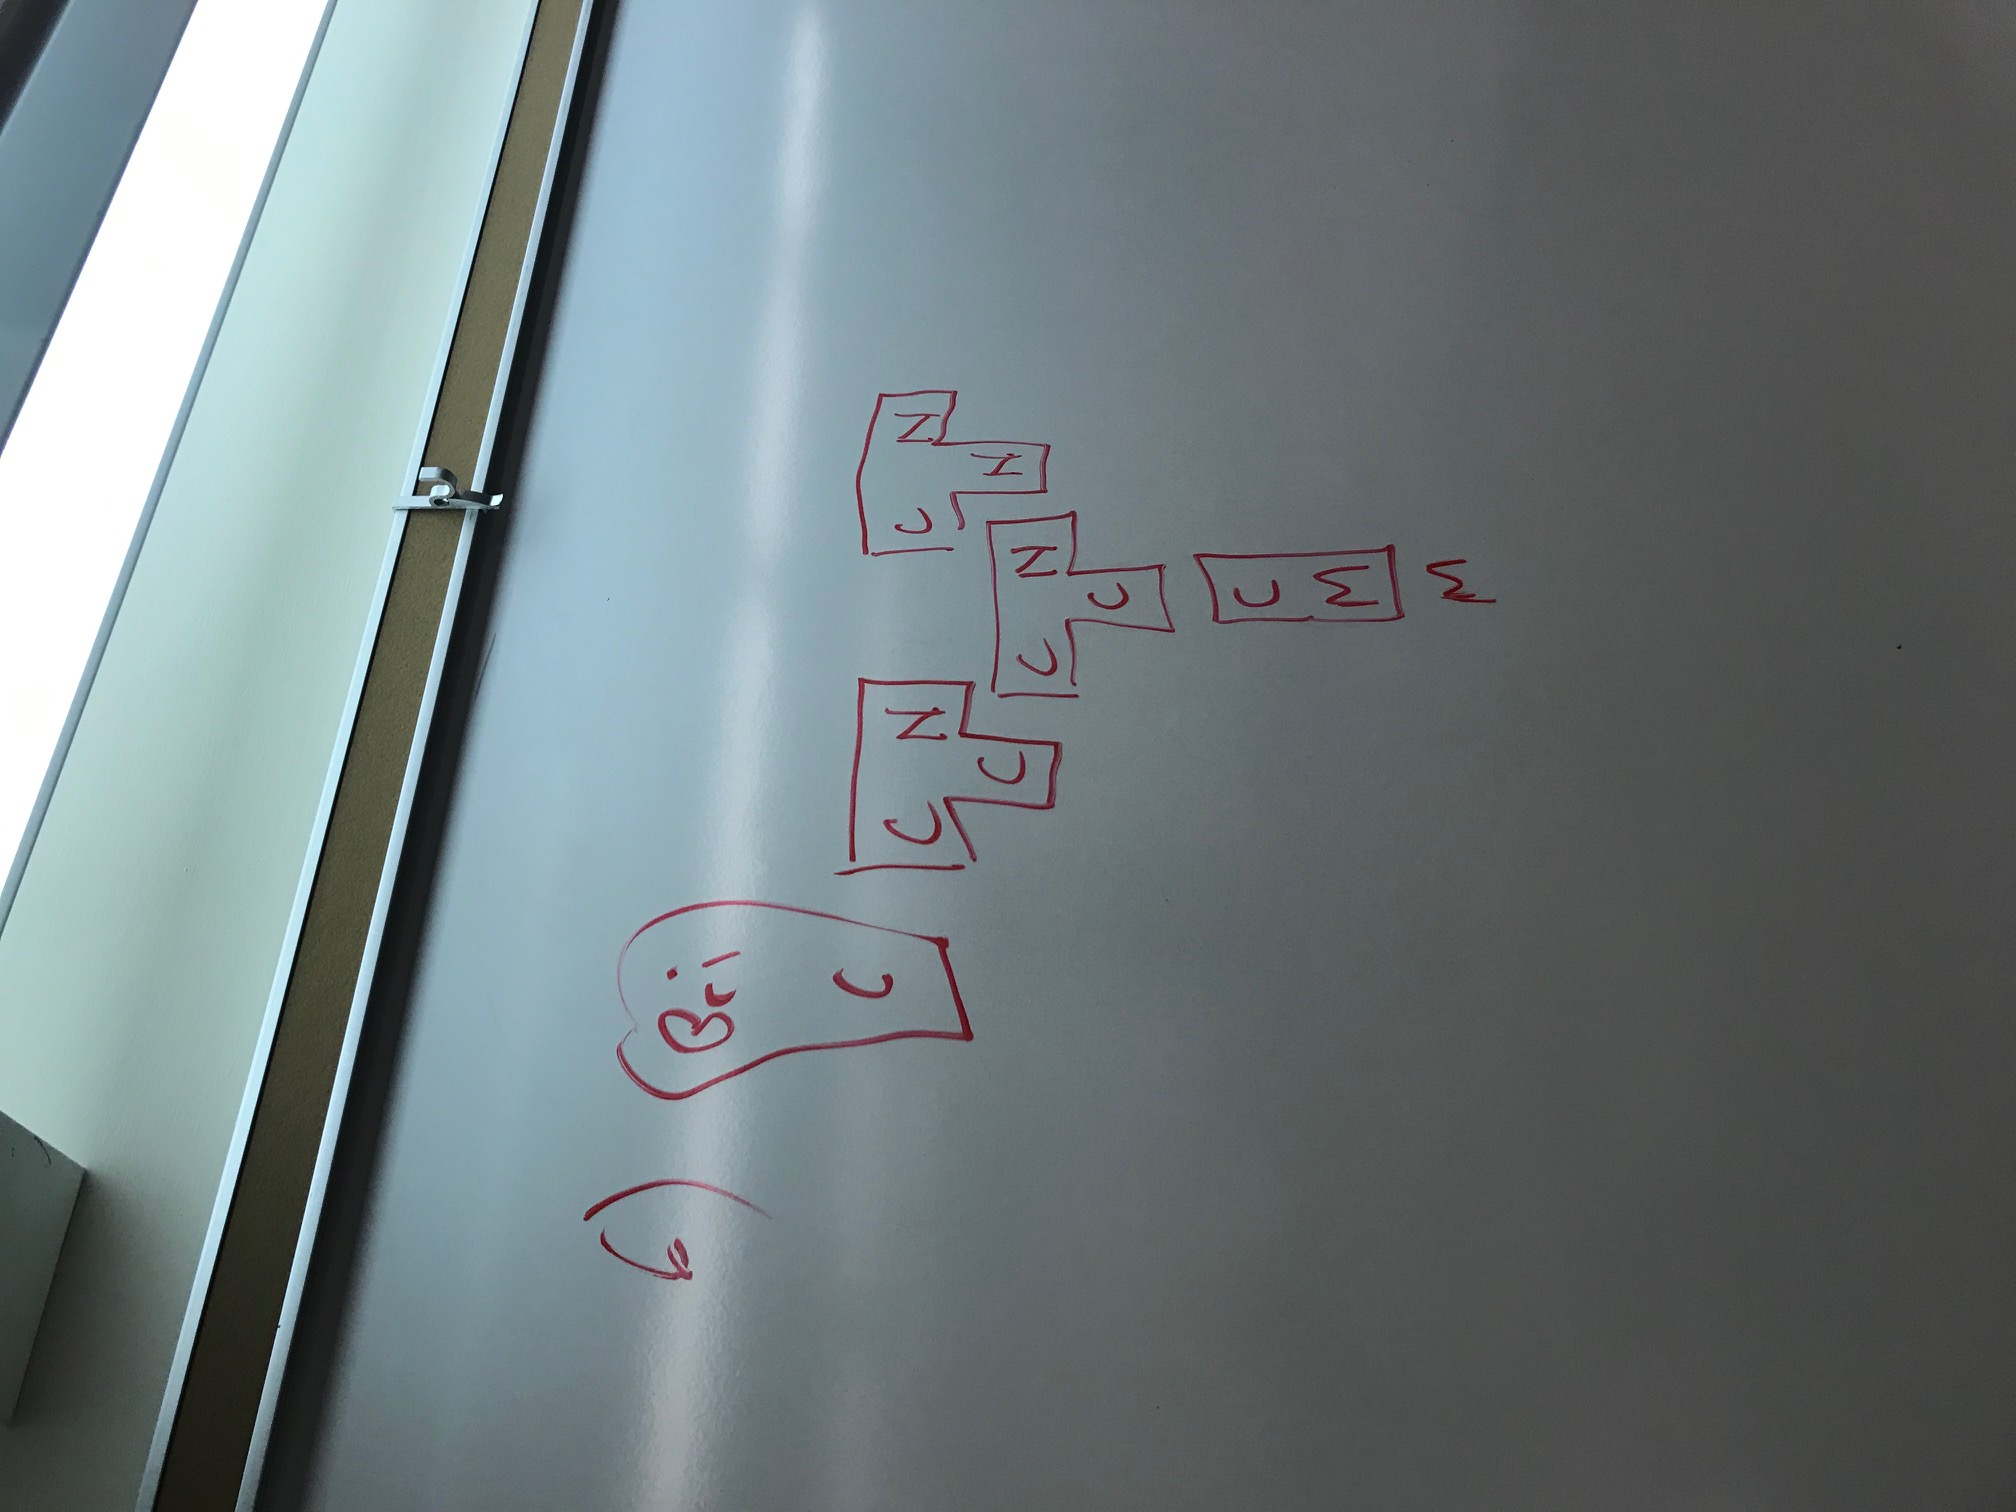 6)
Bri
C
C N
C
C N
N
C N
C
C
M
M